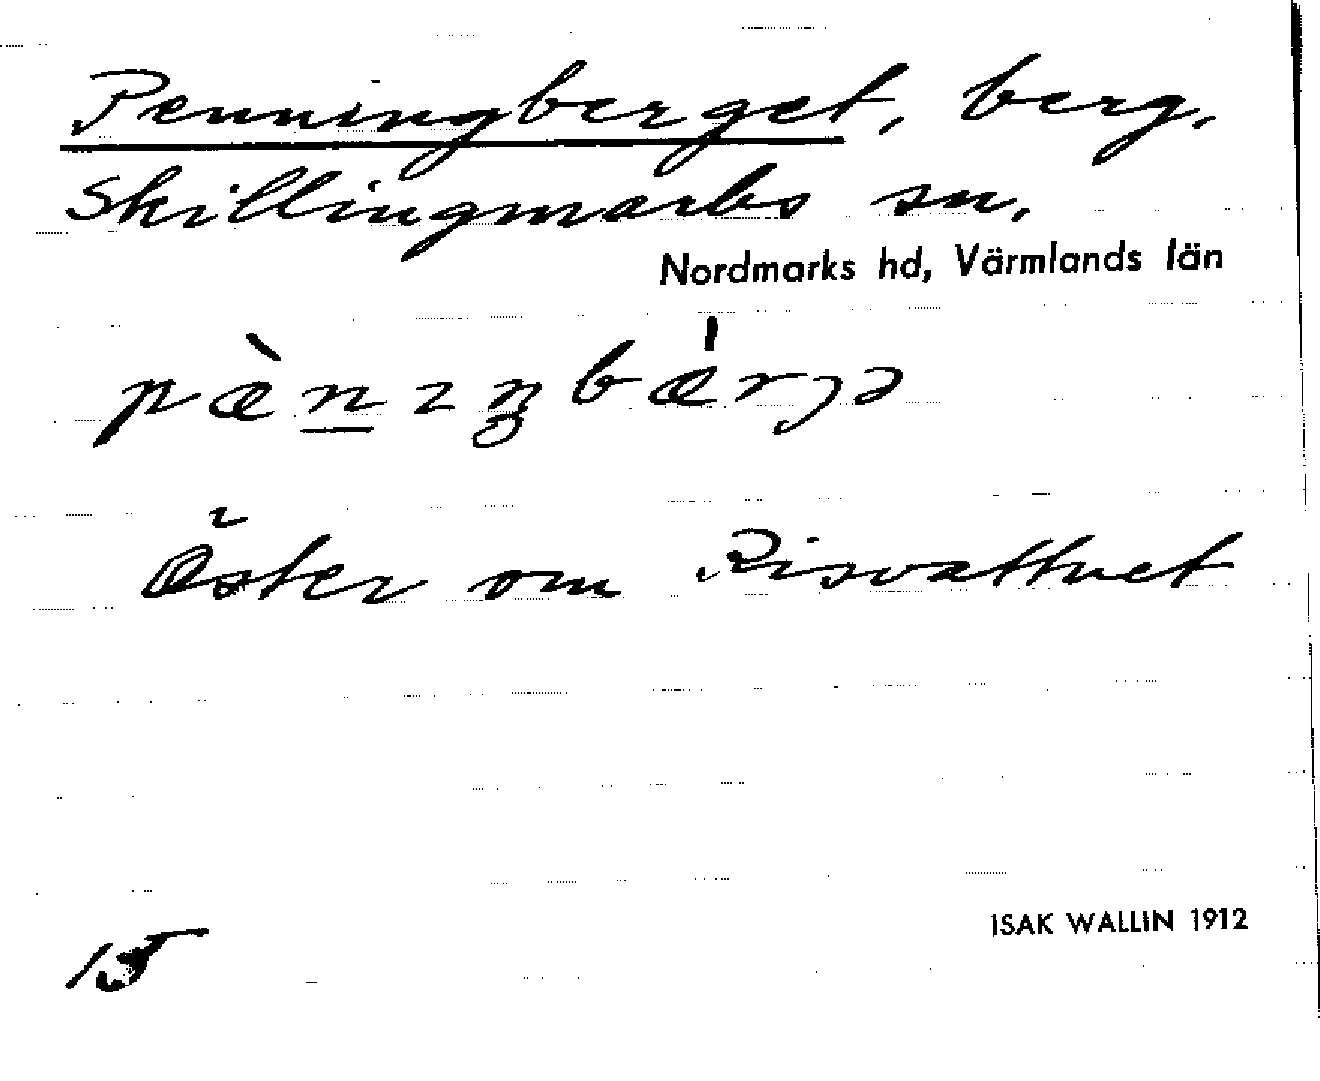 Penningberget, berg.
Skillingmarks sn.
Nordmarks hd, Värmlands län
pæ̀n̲ɪŋbǽrjə
Öster om Risvattnet
ISAK WALLIN 1912
15